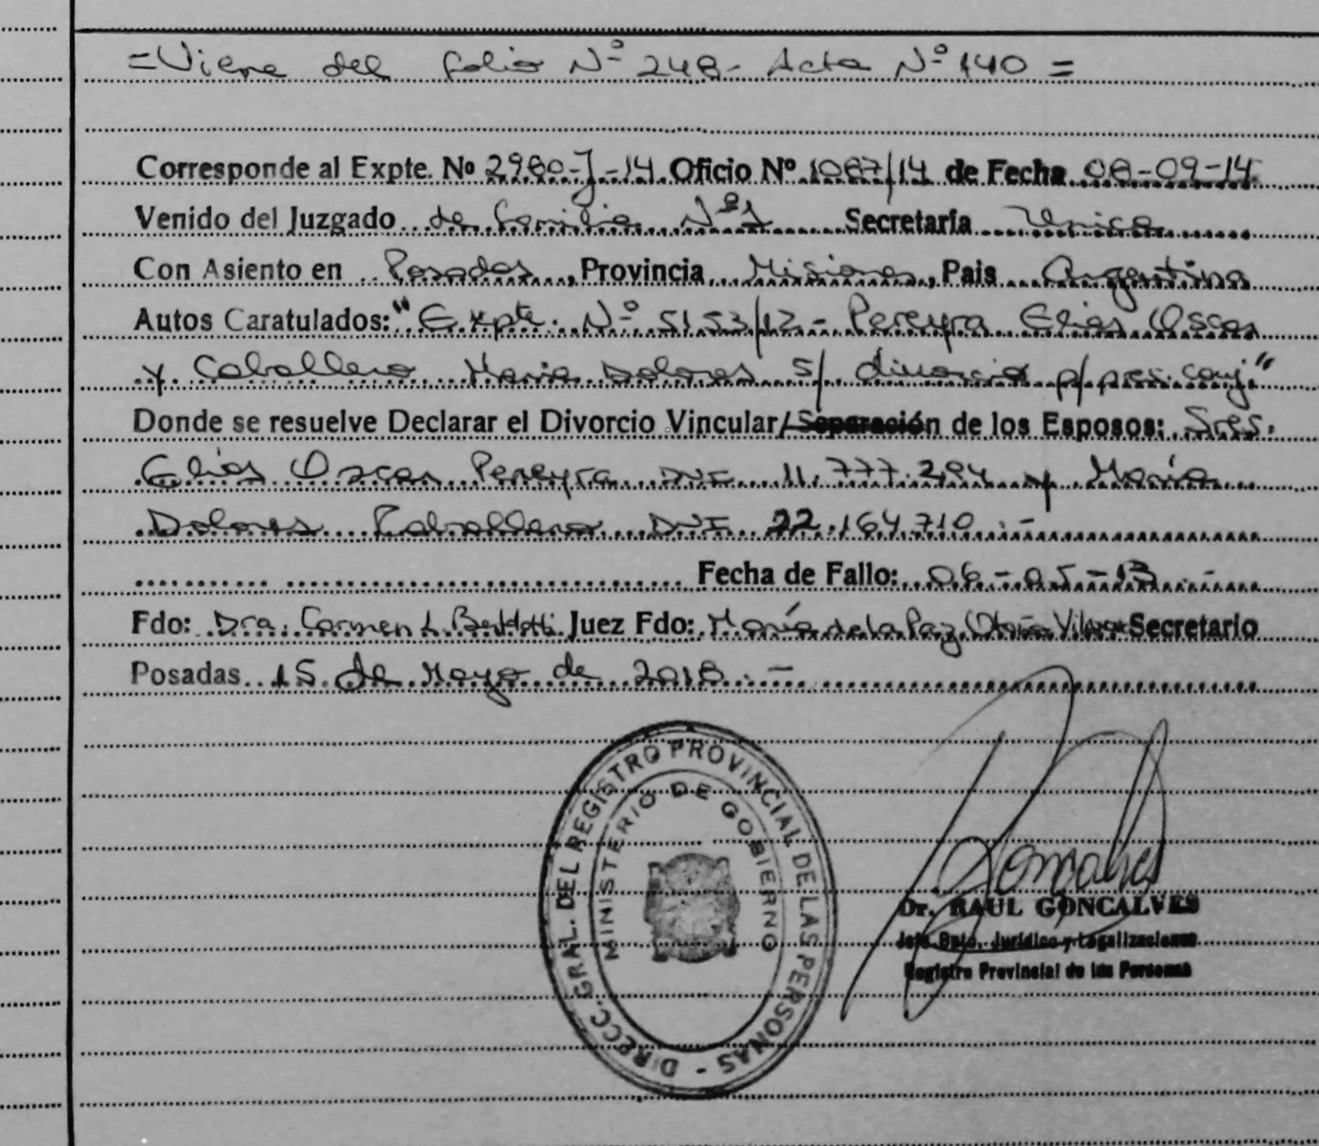 =Viene del folio Nº 248- Acta Nº 140=
Corresponde al Expte. Nº 2980-J-14 Oficio Nº 1087/14 de Fecha 08-09-14
Venido del Juzgado de Familia Nº1 Secretaría Unica
Con Asiento en Posadas, Provincia Misiones, Pais Argentina
Autos Caratulados: "Expte. Nº 5153/12- Pereyra Elias Oscar
y Caballero Maria Dolores s/ divorcio p/pres. conj."
Donde se resuelve Declarar el Divorcio Vincular/Separación de los Esposos: Sres.
Elias Oscar Pereyra DNI 11.777.294 y María
Dolores Caballero DNI 22.164.710.-
Fecha de Fallo: 06-05-13.-
Fdo: Dra. Carmen L. Juez Fdo: María de la Paz Secretario
Posadas 15 de Mayo de 2018.-
DIRECC. GRAL. DEL REGISTRO PROVINCIAL DE LAS PERSONAS -
MINISTERIO DE GOBIERNO
Dr. RAUL GONCALVES
Jefe Dpto. Jurídico y Legalizaciones
Registro Provincial de las Personas